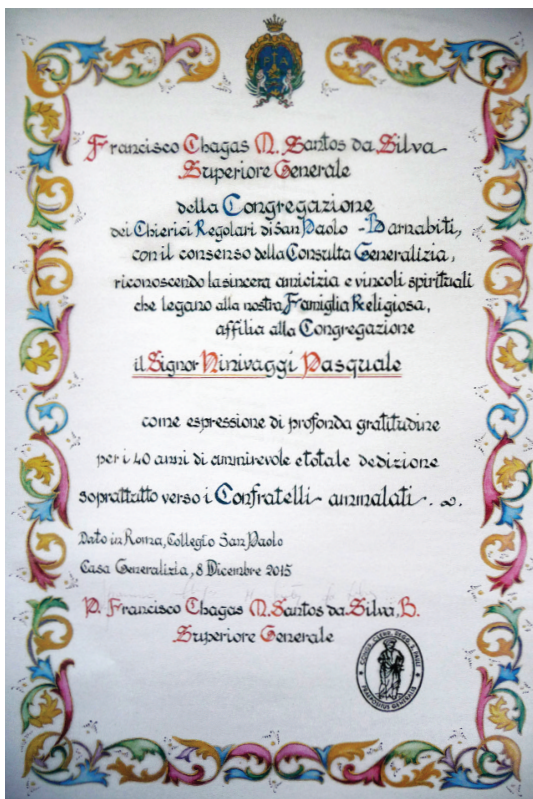 P A
Francisco Chagas M. Santos da Silva
Superiore Generale
della Congregazione
dei Chierici Regolari di San Paolo - Barnabiti,
con il consenso della Consulta Generalizia,
riconoscendo la sincera amicizia e vincoli spirituali
che legano alla nostra Famiglia Religiosa,
affilia alla Congregazione
il Signor Ninivaggi Pasquale
come espressione di profonda gratitudine
per i 40 anni di ammirevole e totale dedizione
soprattutto verso i Confratelli ammalati.
Dato in Roma, Collegio San Paolo
Casa Generalizia, 8 Dicembre 2015
P. Francisco Chagas M. Santos da Silva, B.
Superiore Generale
CONGR. CLERR. REGG. S. PAULI
PRAEPOSITUS GENERALIS